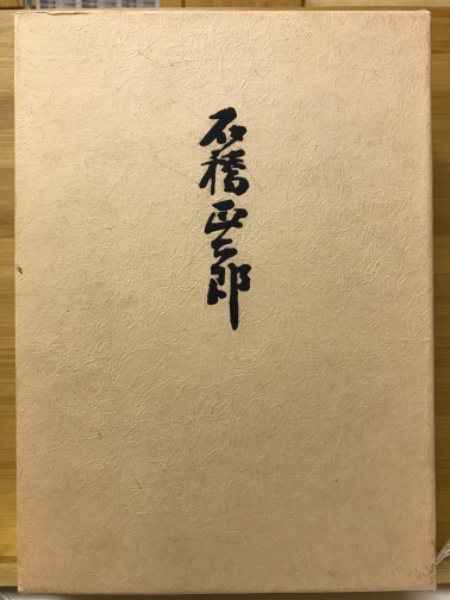 石橋正二郎